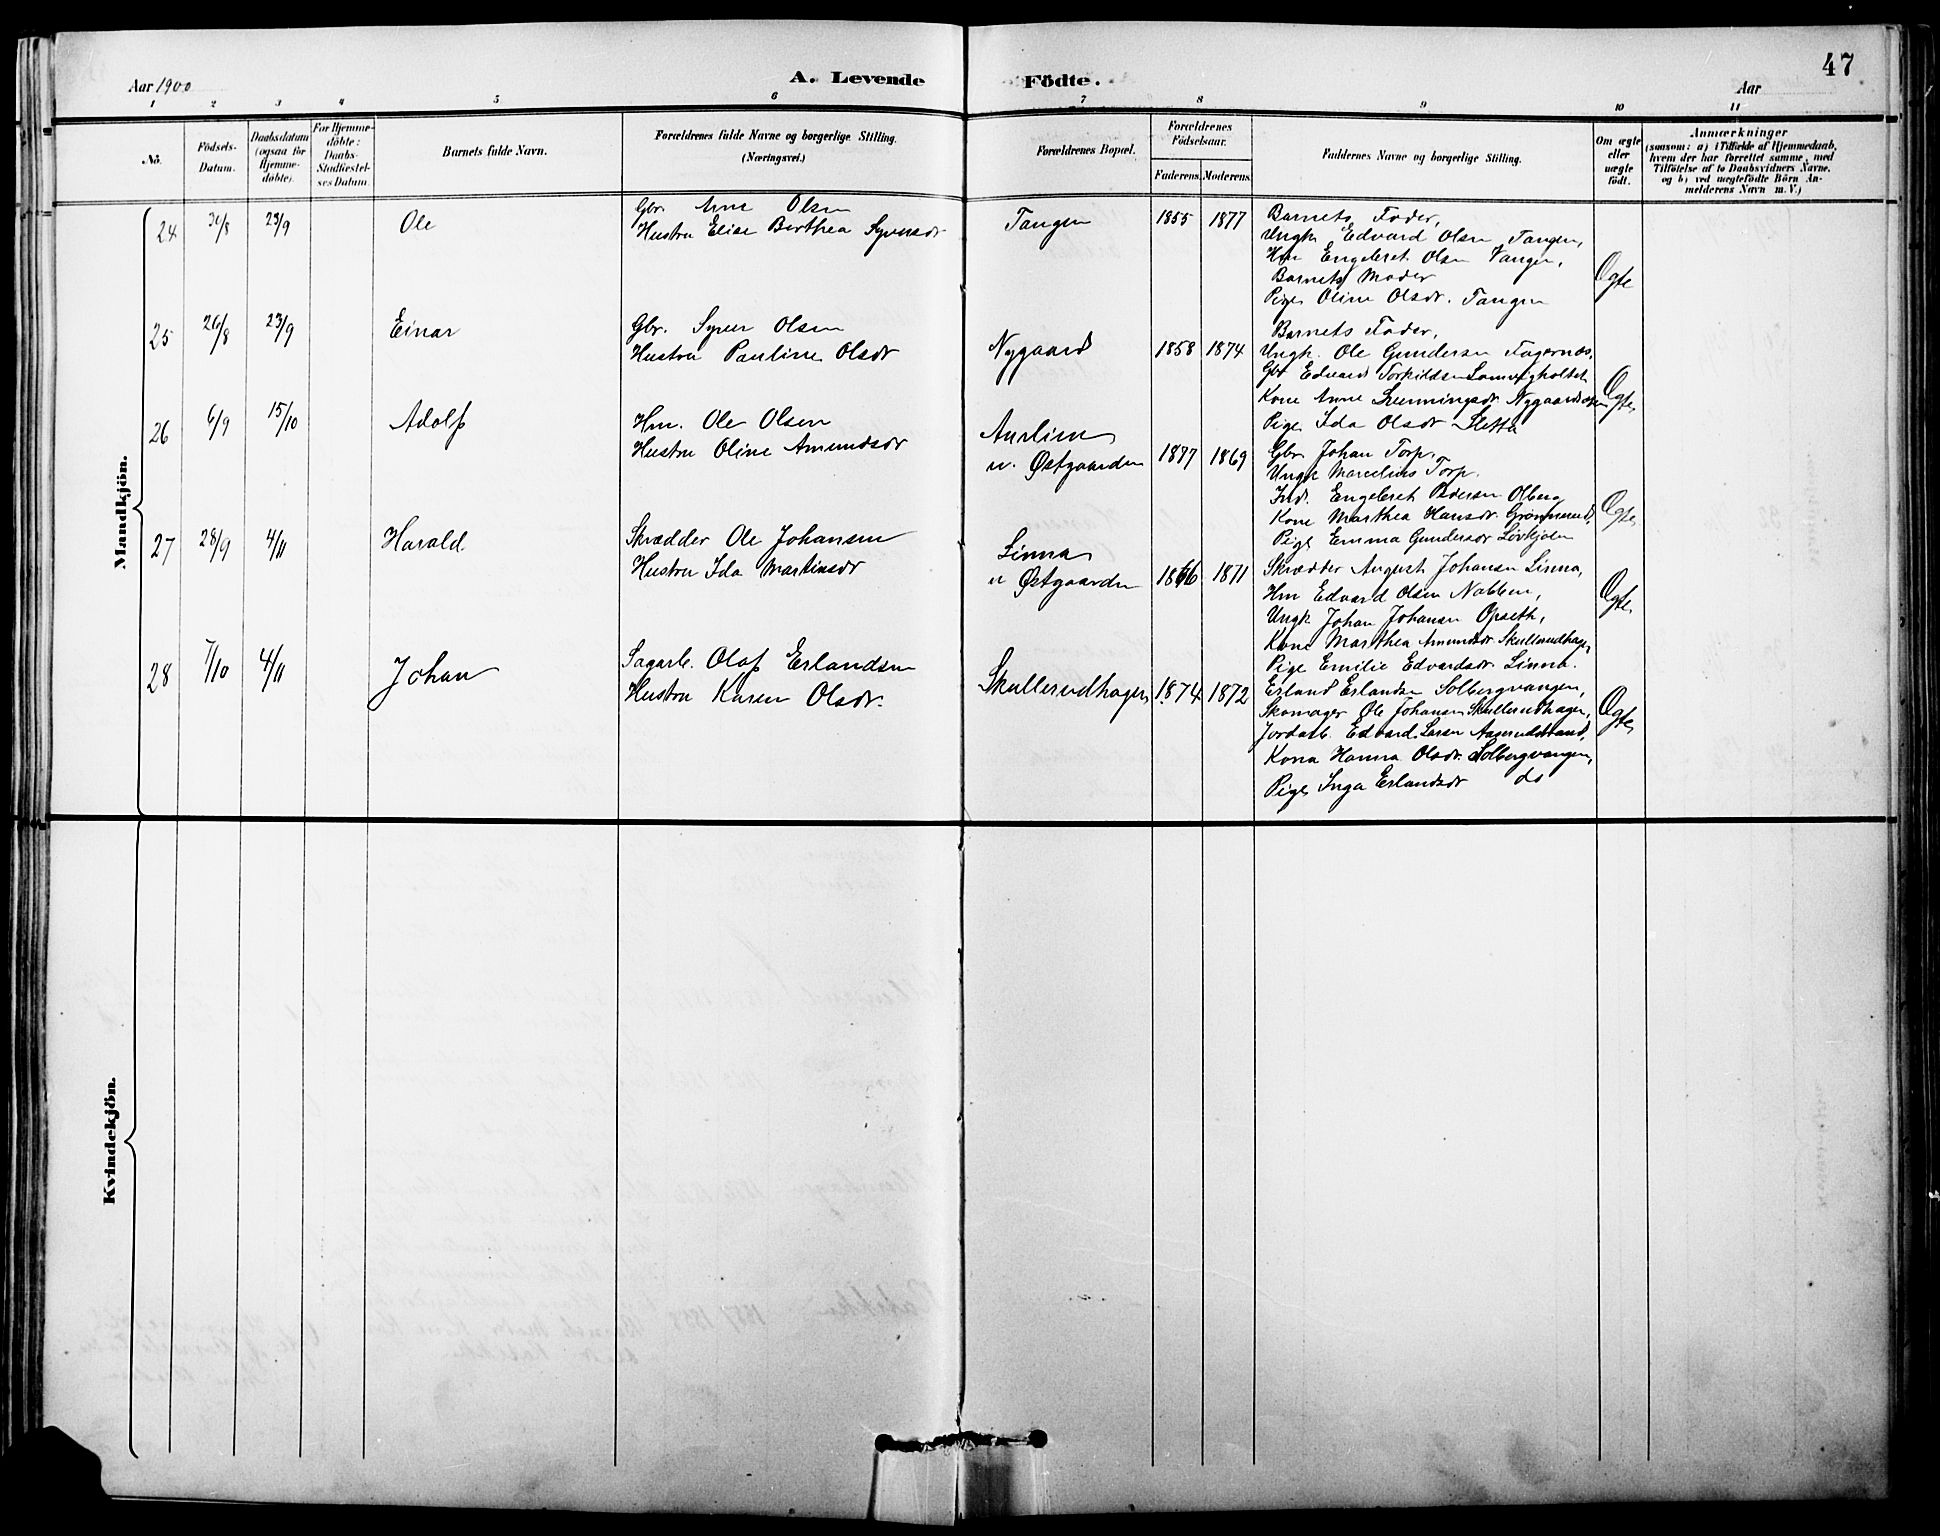 47
Aar 1900
A. Levende Födte.
Aar
1 2 3 4 5 6 7 8 9 10 11
No.
Födsels-Datum.
Daabsdatum (ogsaa for Hjemme-döbte).
For Hjemme-döbte: Daabs-Stadfæstel-ses Datum.
Barnets fulde Navn.
Forældrenes fulde Navne og borgerlige Stilling. (Næringsvei.)
Forældrenes Bopæl.
Forældrenes Födselsaar.
Faderens. Moderens.
Faddernes Navne og borgerlige Stilling.
Om ægte eller uægte födt.
Anmærkninger
(saasom: a) i Tilfælde af Hjemmedaab, hvem der har forrettet samme, med Tilföielse af to Daabsvidners Navne, og b) ved uægtefödte Börn An-melderens Navn m. V.)
Mandkjön.
24 30/8 23/9 Ole
Gbr. Arne Olsen
Hustru Elise Berthea Syversdr
Tangen 1855 1877
Barnets Fader,
Ungk. Edvard Olsen Tangen,
Hm Engebret Olsen Tangen,
Barnets Moder
Pige Oline Olsdr. Tangen
Ægte
25 26/8 23/9 Einar
Gbr. Syver Olsen
Hustru Pauline Olsdr
Nygaard 1858 1874
Barnets Fader,
Ungk. Ole Gundersen Fagernæs,
Gbr Edvard Torkildsen
Kone Anne Nygaards
Pige Ida Olsdr Sletta
Ægte
26 6/9 15/10 Adolf
Hm. Ole Olsen
Hustru Oline Amundsdr
u. Østgaarden 1877 1869
Gbr. Johan Torp.
Ungk Marcelius Torp.
Ind. Engebret Olberg
Kone Marthea Hansdr. Grønnerud,
Pige Emma Gundersdr Løvhjolen
Ægte
27 28/9 4/11 Harald
Skrædder Ole Johansen
Hustru Ida Martinsdr
Linna
u Østgaarden 1866 1871
Skrædder August Johansen Linna,
Hm Edvard Olsen Nabben,
Ungk Johan Johansen Opseth,
Kone Marthea Amundsdr Skullerudhagen
Pige Emilie Edvardsdr. Linna.
Ægte
28 7/10 4/11 Johan
Sagarb. Olaf Erlandsen
Hustru Karen Olsdr.
Skullerudhagen 1874 1872
Erland Erlandsen Solbergvangen,
Skomager Ole Johansen Skullerudhagen,
Jordarb. Edvard Larsen
Kona Hanna Olsdr. Solbergvangen,
Pige Inga Erlandsdr do
Ægte
Kvindekjön.